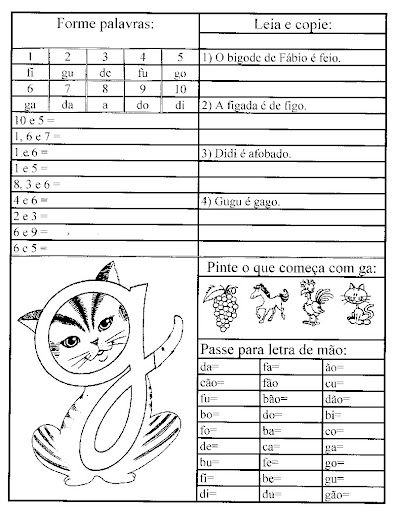 Forme palavras:
1 2 3 4 5
fi gu de fu go
6 7 8 9 10
ga da a do di
10 e 5 =
1, 6 e 7 =
1 e 6 =
1 e 5 =
8, 3 e 6 =
4 e 6 =
2 e 3 =
6 e 9 =
6 e 5 =
Leia e copie:
1) O bigode de Fábio é feio.
2) A figada é de figo.
3) Didi é afobado.
4) Gugu é gago.
Pinte o que começa com ga:
Passe para letra de mão:
da= fa= ão=
cão= fão cu=
fu= bão= dão=
bo= do= bi=
fo= ba= co=
de= ca= ga=
bu= fe= go=
fi= be= gu=
di= du= gão=